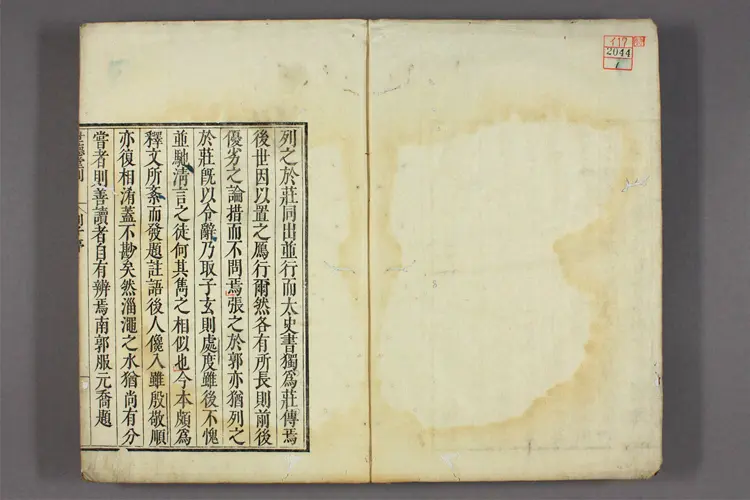 列之於莊同出並行而太史書獨爲莊傳焉
後世因以置之鴈行爾然各有所長則前後
優劣之論措而不問焉張之於郭亦猶列之
於莊旣以令辭乃取子玄則處度雖後不愧
並馳淸言之徒何其雋之相似也今本頗爲
釋文所紊而發題註語後人儳入雖殷敬順
亦復相淆蓋不尠矣然淄澠之水猶尚有分
嘗者則善讀者自有辨焉南郭服元喬題
イ17
2044
1